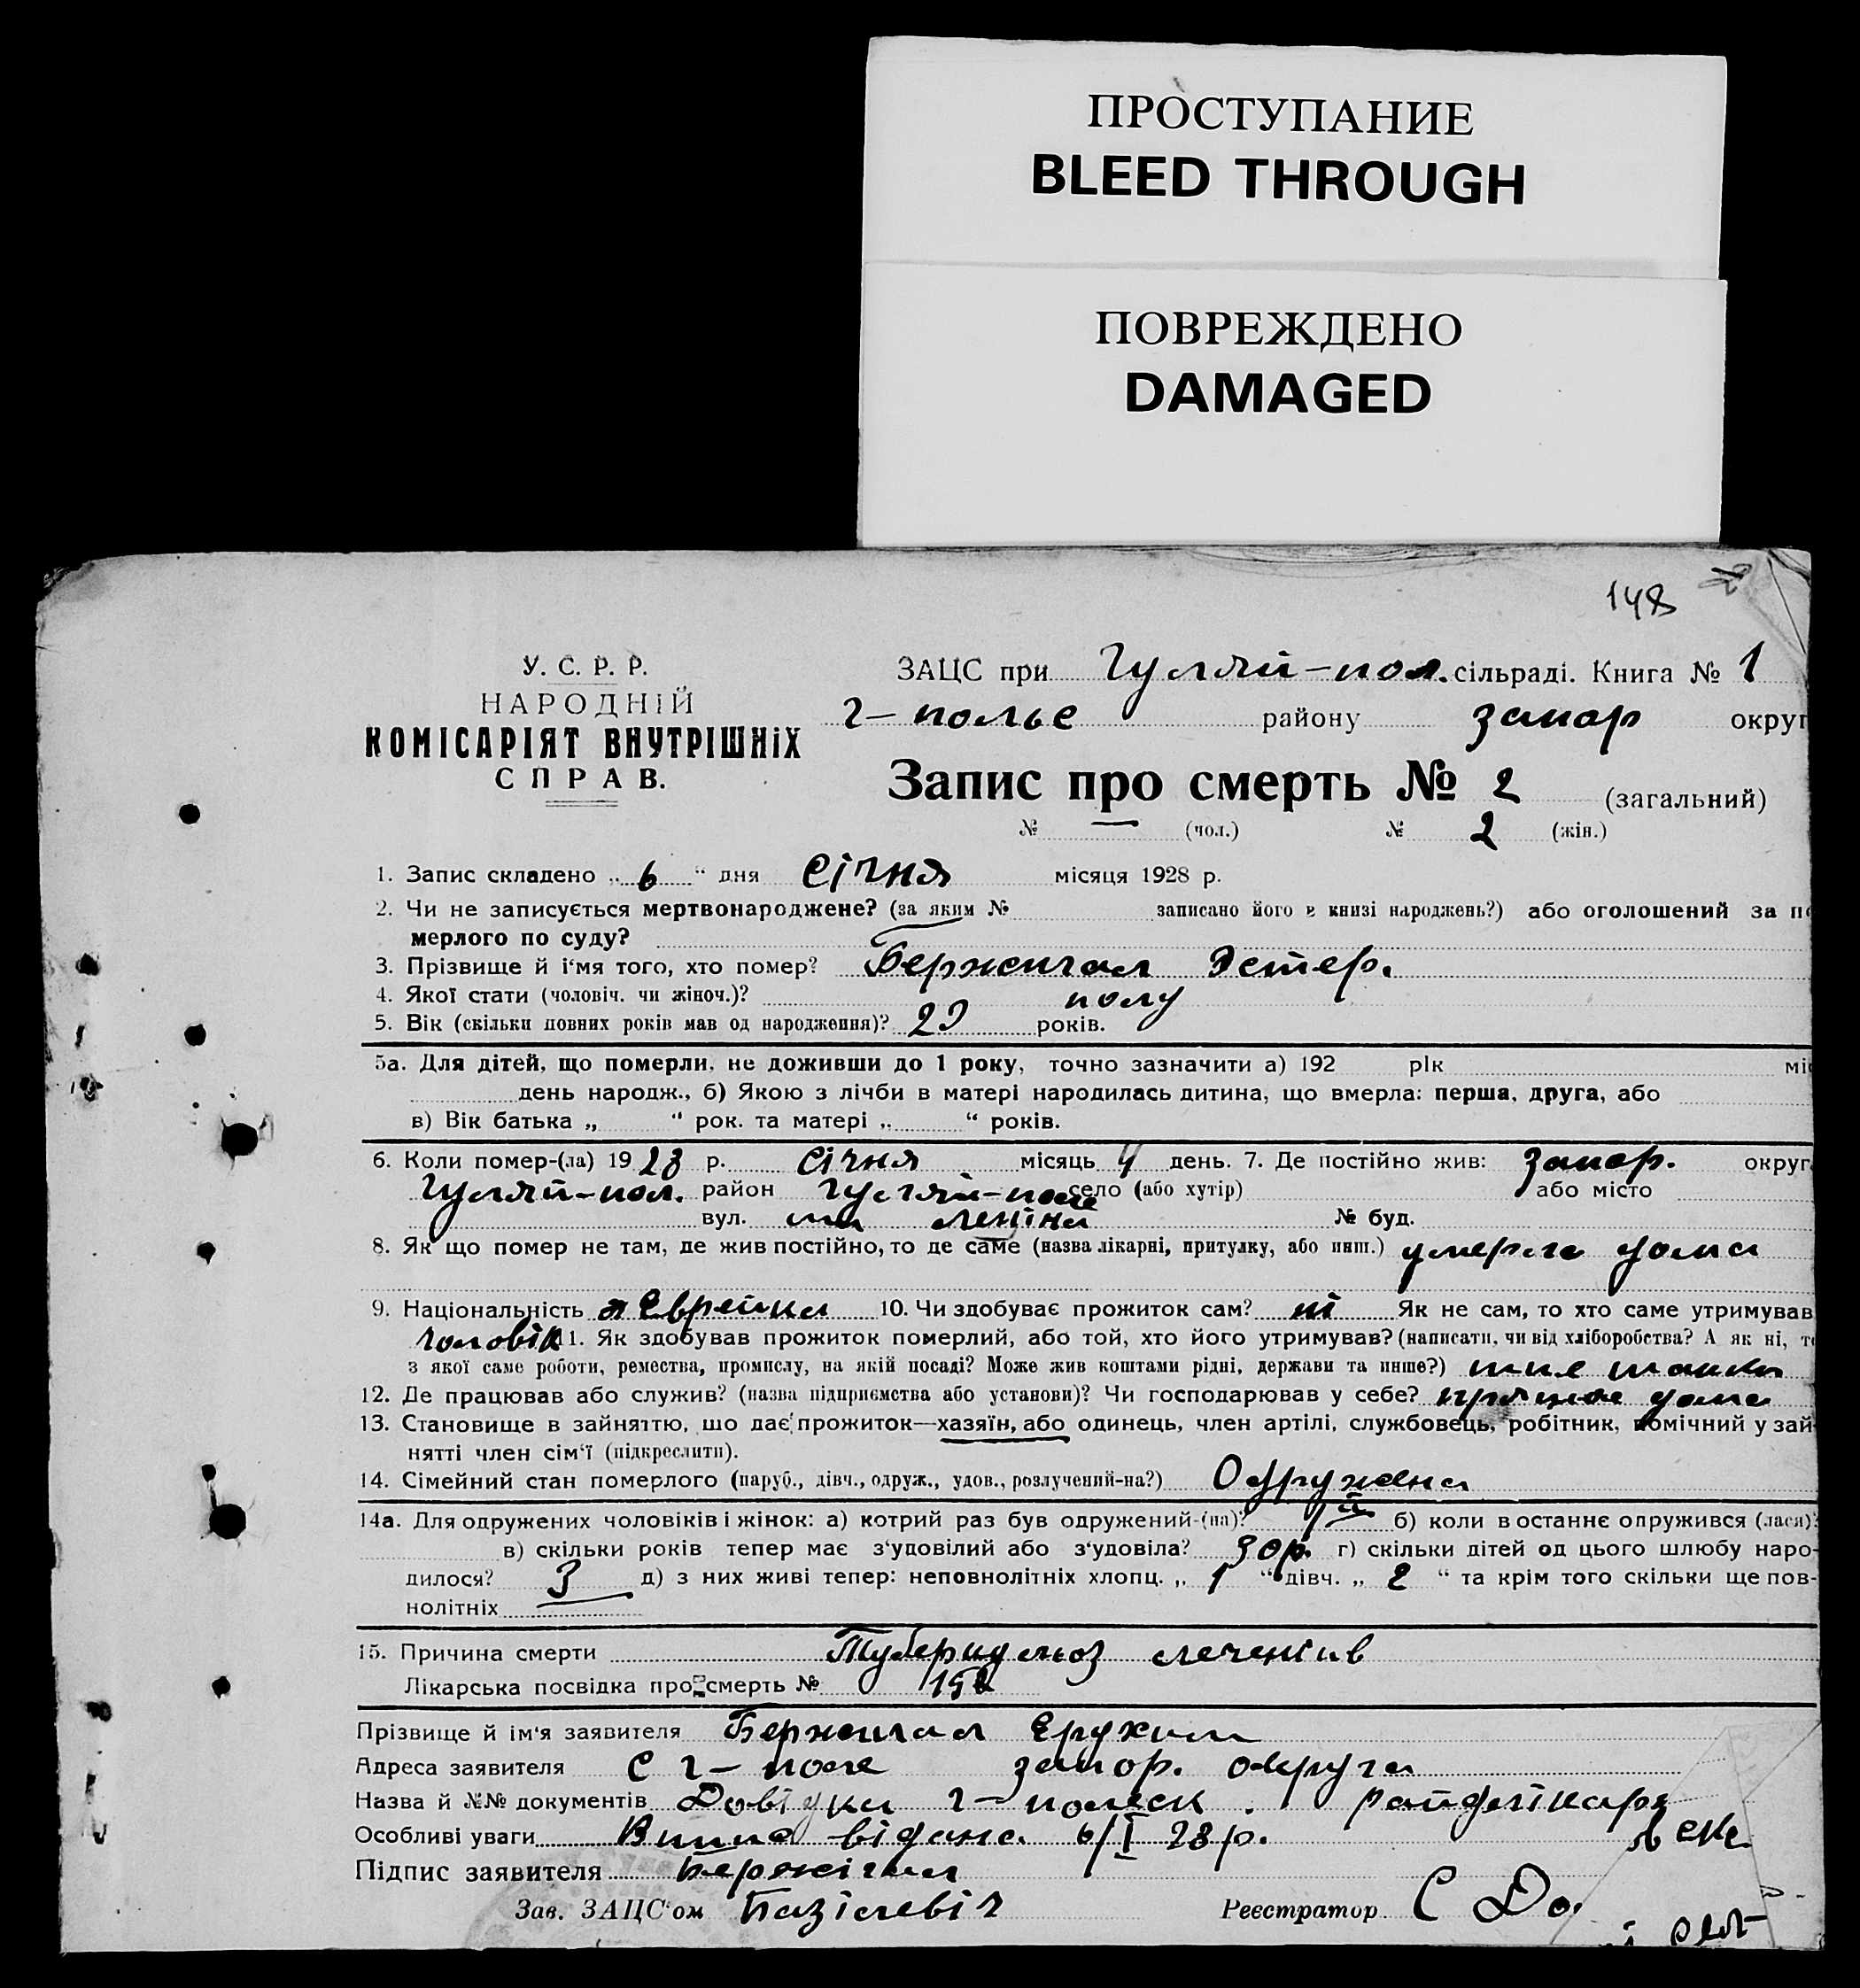 ПРОСТУПАНИЕ
BLEED THROUGH
ПОВРЕЖДЕНО
DAMAGED
148
У. С. Р. Р.
НАРОДНІЙ
КОМІСАРІЯТ ВНУТРІШНІХ
СПРАВ.
ЗАЦС при Гуляй-пол. сільраді. Книга № 1
Г-полье району запор округ
Запис про смерть № 2 (загальний)
№ — (чол.) № 2 (жін.)
1. Запис складено „ 6 “ дня Січня місяця 1928 р.
2. Чи не записується мертвонароджене? (за яким № записано його в книзі народжень?) або оголошений за п
мерлого по суду?
3. Прізвище й і‘мя того, хто помер? Эстер.
4. Якої стати (чоловіч. чи жіноч.)? полу
5. Вік (скільки повних років мав од народження)? років.
5а. Для дітей, що померли, не доживши до 1 року, точно зазначити а) 192 рік мі
день народж., б) Якою з лічби в матері народилась дитина, що вмерла: перша, друга, або
в) Вік батька „ “ рок. та матері „ “ років.
6. Коли помер-(ла) 1928 р. Січня місяць 4 день. 7. Де постійно жив: запор. округ
Гуляй-пол. район Гуляй-поле село (або хутір) або місто
вул. Леніна № буд.
8. Як що помер не там, де жив постійно, то де саме (назва лікарні, притулку, або инш.) умерла дома
9. Національність Еврейка 10. Чи здобуває прожиток сам? ні Як не сам, то хто саме утримував
чоловік 11. Як здобував прожиток померлий, або той, хто його утримував? (написати, чи від хліборобства? А як ні, т
з якої саме роботи, ремества, промислу, на якій посаді? Може жив коштами рідні, держави та инше?) шапки
12. Де працював або служив? (назва підприємства або установи)? Чи господарював у себе? дома
13. Становище в зайняттю, що дає прожиток—хазяїн, або одинець, член артілі, службовець, робітник, помічний у зай-
нятті член сім‘ї (підкреслити).
14. Сімейний стан померлого (паруб., дівч., одруж., удов., розлучений-на?) Одружена
14а. Для одружених чоловіків і жінок: а) котрий раз був одружений-(на)? 1й б) коли в останнє одружився (лася)?
в) скільки років тепер має з‘удовілий або з‘удовіла? 30 р. г) скільки дітей од цього шлюбу наро-
дилося? 3 д) з них живі тепер: неповнолітніх хлопц. „ 1 “ дівч. „ 2 “ та крім того скільки ще пов-
нолітніх
15. Причина смерти Туберкульоз легенів
Лікарська посвідка про смерть №
Прізвище й ім‘я заявителя Ерухим
Адреса заявителя С Г-поле запор. округа
Назва й №№ документів Довідка Г-польск. райдітлікаря
Особливі уваги Випис відана 6/I 28 р.
Підпис заявителя
Зав. ЗАЦС‘ом Реєстратор С До.